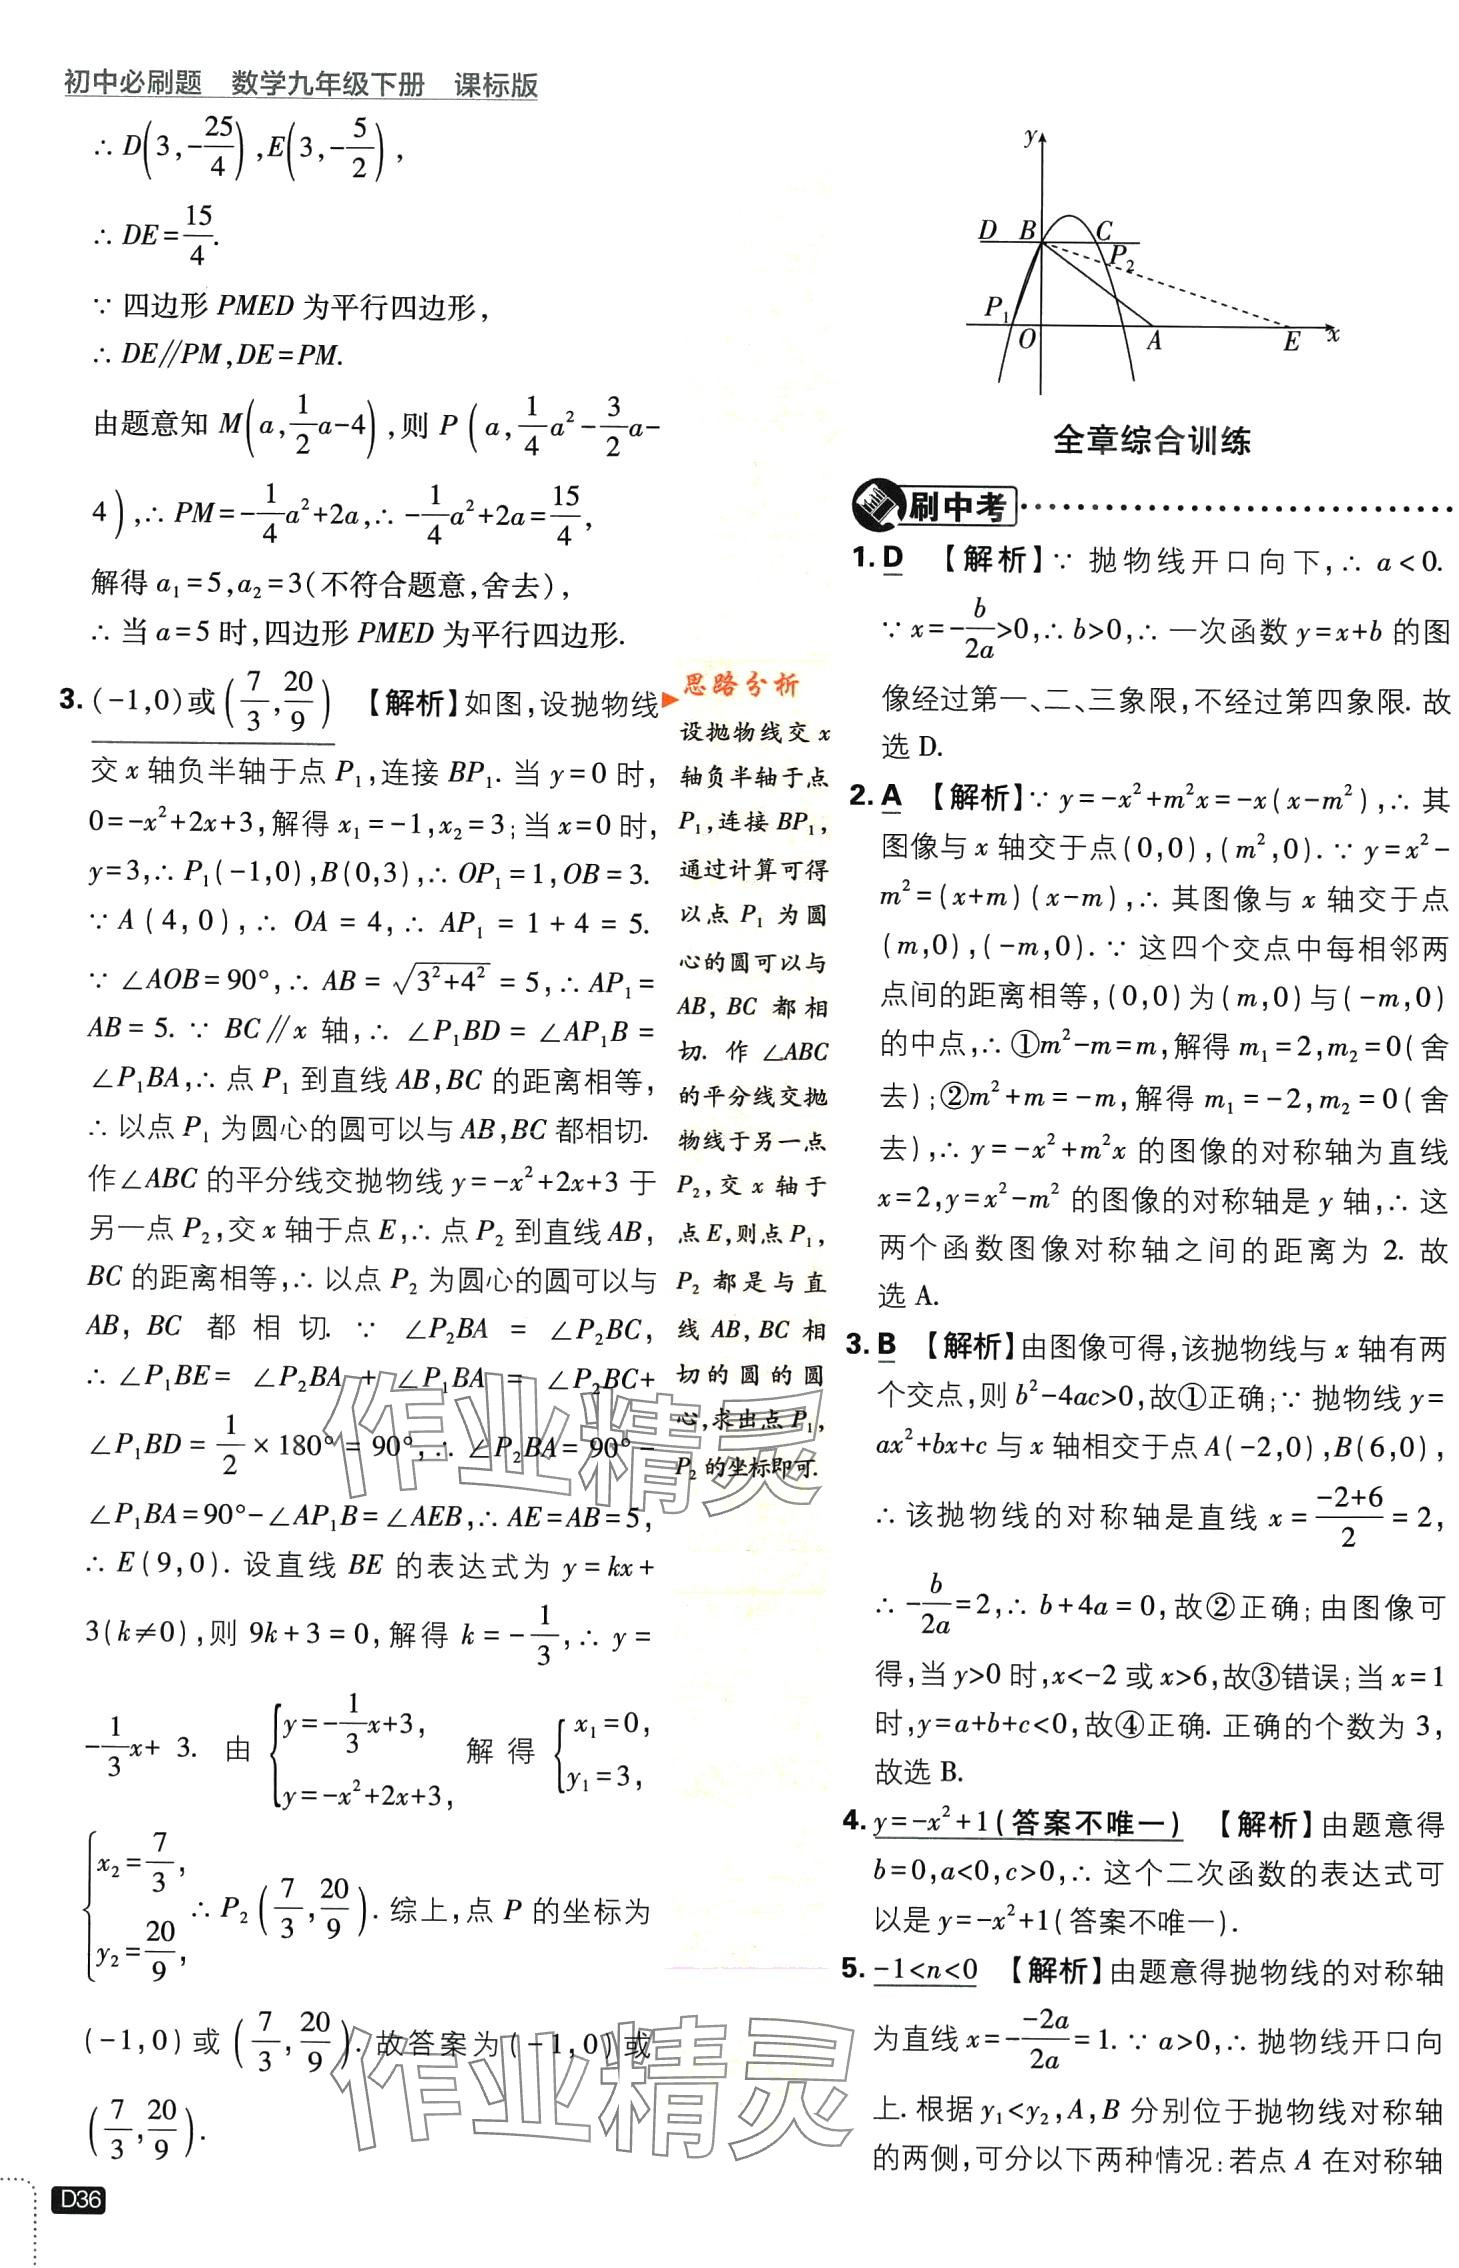 初中必刷题 数学九年级下册 课标版
∴ D(3,-25/4),E(3,-5/2),
∴ DE=15/4.
∵ 四边形 PMED 为平行四边形,
∴ DE∥PM,DE=PM.
由题意知 M(a,1/2a-4),则 P(a,1/4a²-3/2a-
4),∴ PM=-1/4a²+2a,∴ -1/4a²+2a=15/4,
解得 a₁=5,a₂=3(不符合题意,舍去),
∴ 当 a=5 时,四边形 PMED 为平行四边形.
3. (-1,0)或(7/3,20/9) 【解析】如图,设抛物线
交 x 轴负半轴于点 P₁,连接 BP₁. 当 y=0 时,
0=-x²+2x+3,解得 x₁=-1,x₂=3;当 x=0 时,
y=3,∴ P₁(-1,0),B(0,3),∴ OP₁=1,OB=3.
∵ A(4,0),∴ OA=4,∴ AP₁=1+4=5.
∵ ∠AOB=90°,∴ AB=√(3²+4²)=5,∴ AP₁=
AB=5. ∵ BC∥x 轴,∴ ∠P₁BD=∠AP₁B=
∠P₁BA,∴ 点 P₁ 到直线 AB,BC 的距离相等,
∴ 以点 P₁ 为圆心的圆可以与 AB,BC 都相切.
作∠ABC 的平分线交抛物线 y=-x²+2x+3 于
另一点 P₂,交 x 轴于点 E,∴ 点 P₂ 到直线 AB,
BC 的距离相等,∴ 以点 P₂ 为圆心的圆可以与
AB, BC 都相切. ∵ ∠P₂BA=∠P₂BC,
∴ ∠P₁BE=∠P₂BA+∠P₁BA=∠P₂BC+
∠P₁BD=1/2×180°=90°,∴ ∠P₂BA=90°-
∠P₁BA=90°-∠AP₁B=∠AEB,∴ AE=AB=5,
∴ E(9,0). 设直线 BE 的表达式为 y=kx+
3(k≠0),则 9k+3=0,解得 k=-1/3,∴ y=
-1/3x+3. 由 {y=-1/3x+3, y=-x²+2x+3, 解得 {x₁=0, y₁=3,
{x₂=7/3, y₂=20/9, ∴ P₂(7/3,20/9). 综上,点 P 的坐标为
(-1,0)或(7/3,20/9). 故答案为(-1,0)或
(7/3,20/9).
D36
思路分析
设抛物线交 x
轴负半轴于点
P₁,连接 BP₁,
通过计算可得
以点 P₁ 为圆
心的圆可以与
AB, BC 都相
切. 作∠ABC
的平分线交抛
物线于另一点
P₂,交 x 轴于
点 E,则点 P₁,
P₂ 都是与直
线 AB,BC 相
切的圆的圆
心,求出点 P₁,
P₂ 的坐标即可.
y
D B C
P₂
P₁ O A E x
全章综合训练
刷中考
1. D 【解析】∵ 抛物线开口向下,∴ a<0.
∵ x=-b/2a>0,∴ b>0,∴ 一次函数 y=x+b 的图
像经过第一、二、三象限,不经过第四象限. 故
选 D.
2. A 【解析】∵ y=-x²+m²x=-x(x-m²),∴ 其
图像与 x 轴交于点(0,0),(m²,0). ∵ y=x²-
m²=(x+m)(x-m),∴ 其图像与 x 轴交于点
(m,0),(-m,0). ∵ 这四个交点中每相邻两
点间的距离相等,(0,0)为(m,0)与(-m,0)
的中点,∴ ①m²-m=m,解得 m₁=2,m₂=0(舍
去);②m²+m=-m,解得 m₁=-2,m₂=0(舍
去),∴ y=-x²+m²x 的图像的对称轴为直线
x=2,y=x²-m² 的图像的对称轴是 y 轴,∴ 这
两个函数图像对称轴之间的距离为 2. 故
选 A.
3. B 【解析】由图像可得,该抛物线与 x 轴有两
个交点,则 b²-4ac>0,故①正确;∵ 抛物线 y=
ax²+bx+c 与 x 轴相交于点 A(-2,0),B(6,0),
∴ 该抛物线的对称轴是直线 x=(-2+6)/2=2,
∴ -b/2a=2,∴ b+4a=0,故②正确;由图像可
得,当 y>0 时,x<-2 或 x>6,故③错误;当 x=1
时,y=a+b+c<0,故④正确. 正确的个数为 3,
故选 B.
4. y=-x²+1(答案不唯一) 【解析】由题意得
b=0,a<0,c>0,∴ 这个二次函数的表达式可
以是 y=-x²+1(答案不唯一).
5. -1<n<0 【解析】由题意得抛物线的对称轴
为直线 x=-(-2a)/2a=1. ∵ a>0,∴ 抛物线开口向
上. 根据 y₁<y₂,A,B 分别位于抛物线对称轴
的两侧,可分以下两种情况:若点 A 在对称轴
作业精灵
作业精灵